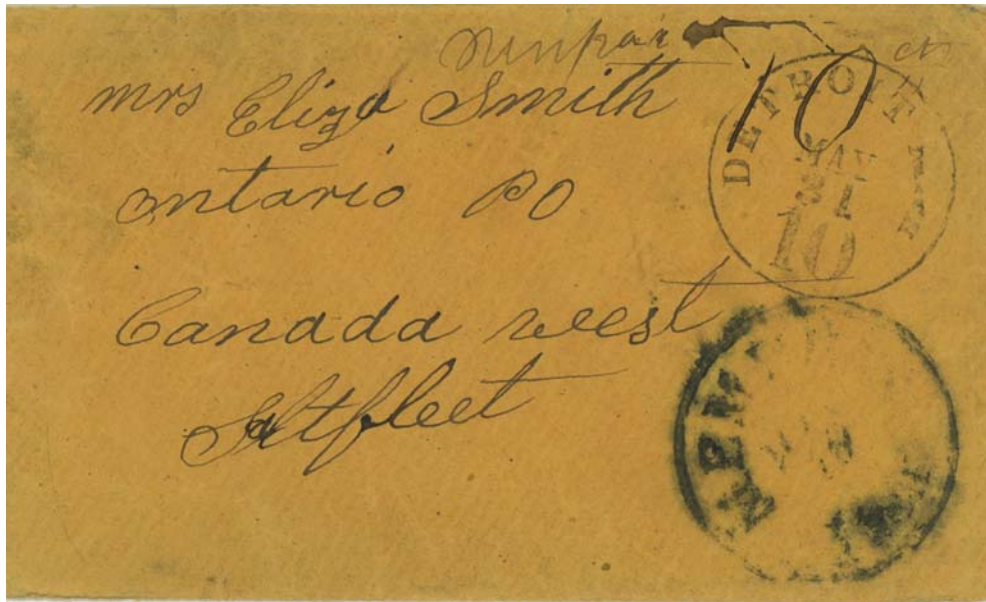 10 cts
mrs Eliza Smith
ontario PO
Canada west
Saltfleet
DETROIT
MAY
1
10
MEMPHIS